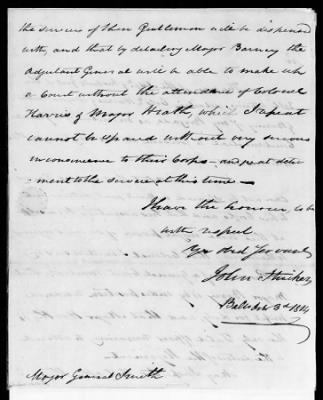 the services of these Gentlemen will be dispensed
with, and that by detailing Major Barney the
Adjutant General will be able to make up
a Court without the attendance of Colonel
Harris & Major Heath, which I repeat
cannot be spared without very serious
inconvenience to their Corps — and great detri-
ment to the service at this time —
I have the honour to be
with respect
Yr Obd Servant
John Stricker
Balt. 3d 1814
Major General Smith